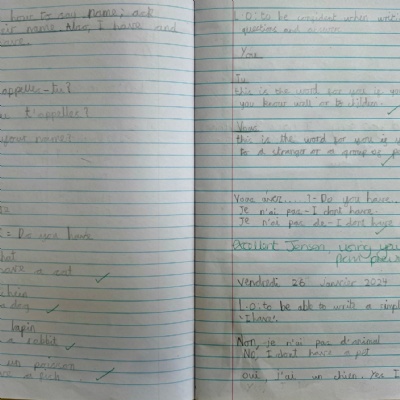 how to say name, ask
their name. Also, I have and
appelles-tu?
tu t'appelles?
your name?
= Do you have
chat
have a cat
chein
a dog
lapin
a rabbit
un poisson
a fish
L.O: to be confident when
questions and
You
Tu
this is the word for you if you
you know well or to children.
Vous
this is the word for you if
to a stranger or a group of
Vous avez.....? - Do you have...
Je n'ai pas - I dont have
Je n'ai pas de - I dont have
Excellent Jenson, using your
Vendredi 26 Janvier 2024
L.O: to be able to write a simple
'I have'.
Non, je n'ai pas d'animal
No, I dont have a pet
Oui, j'ai un chien. Yes I